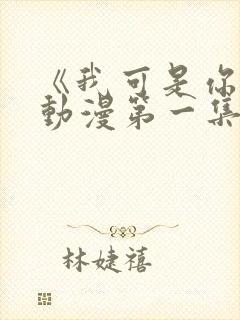 《我可是你
動漫第一集
林婕禧